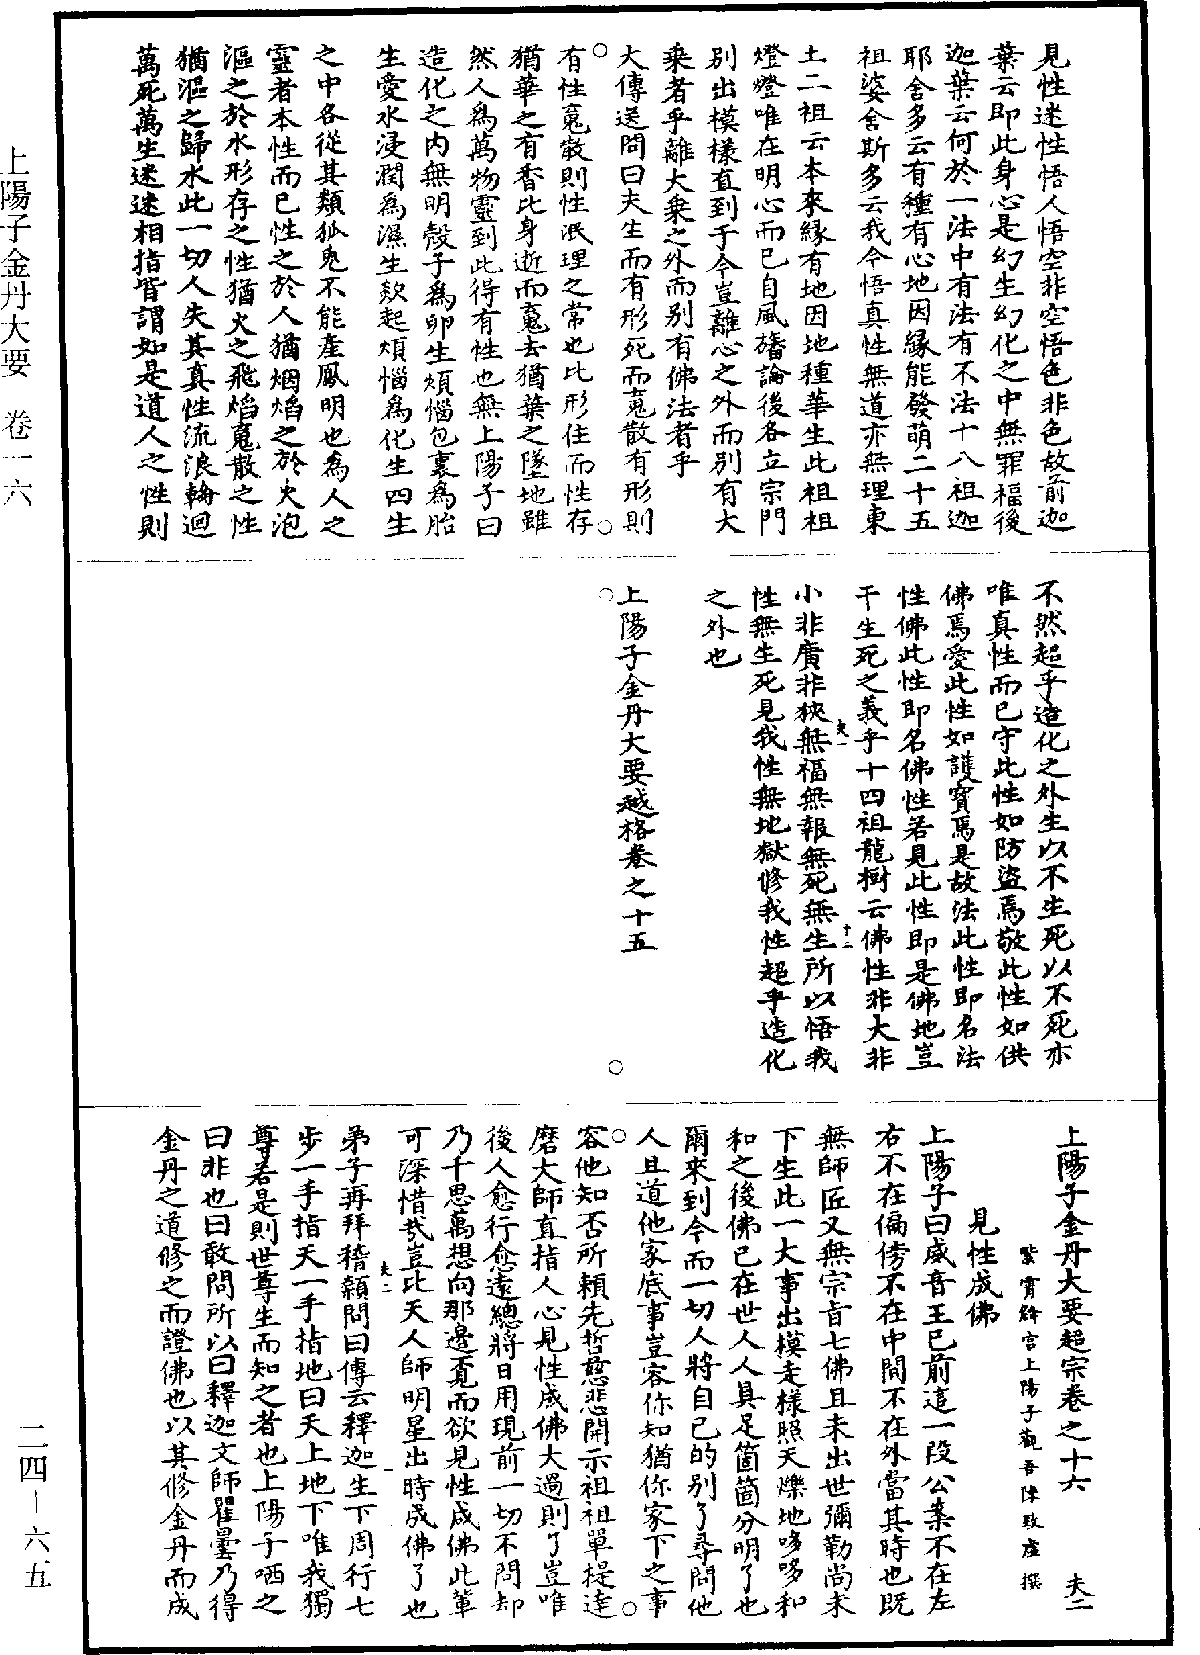 上陽子金丹大要 卷一六
二四-六五
見性迷性悟人悟空非空悟色非色故前迦
葉云即此身心是幻生幻化之中無罪福後
迦葉云何於一法中有法有不法十八祖迦
耶舍多云有種有心地因緣能發萌二十五
祖婆舍斯多云我今悟真性無道亦無理東
土二祖云本來緣有地因地種華生此祖祖
燈燈唯在明心而已自風旛論後各立宗門
別出模樣直到于今豈離心之外而別有大
乘者乎離大乘之外而別有佛法者乎
大傳送問曰夫生而有形死而䰟散有形則
有性䰟散則性泯理之常也比形住而性存
猶華之有香比身逝而䰟去猶葉之墜地雖
然人為萬物靈到此得有性也無上陽子曰
造化之內無明殼子為卵生煩惱包裹為胎
生愛水浸潤為濕生欻起煩惱為化生四生
之中各從其類狐兔不能產鳳明也為人之
靈者本性而已性之於人猶烟熖之於火泡
漚之於水形存之性猶火之飛熖䰟散之性
猶漚之歸水此一切人失其真性流浪輪迴
萬死萬生迷迷相指皆謂如是道人之性則
不然超乎造化之外生以不生死以不死亦
唯真性而已守此性如防盜焉敬此性如供
佛焉愛此性如護寶焉是故法此性即名法
性佛此性即名佛性若見此性即是佛地豈
干生死之義乎十四祖龍樹云佛性非大非
小非廣非狹無福無報無死無生所以悟我
性無生死見我性無地獄修我性超乎造化
之外也
夫一
十二
上陽子金丹大要越格卷之十五
上陽子金丹大要超宗卷之十六 夫二
紫霄絳宮上陽子觀吾陳致虛 撰
見性成佛
上陽子曰威音王已前這一段公案不在左
右不在偏傍不在中間不在外當其時也既
無師匠又無宗旨七佛且未出世彌勒尚未
下生此一大事出模走樣照天爍地哆哆和
和之後佛已在世人人具足箇箇分明了也
爾來到今而一切人將自己的別了尋問他
人且道他家底事豈容你知猶你家下之事
容他知否所賴先哲慈悲開示祖祖單提達
磨大師直指人心見性成佛大過則了豈唯
後人愈行愈遠總將日用現前一切不問却
乃千思萬想向那邊覔而欲見性成佛此輩
可深惜哉豈比天人師明星出時成佛了也
夫二 一
弟子再拜稽顙問曰傳云釋迦生下周行七
步一手指天一手指地曰天上地下唯我獨
尊若是則世尊生而知之者也上陽子哂之
曰非也曰敢問所以曰釋迦文師瞿曇乃得
金丹之道修之而證佛也以其修金丹而成